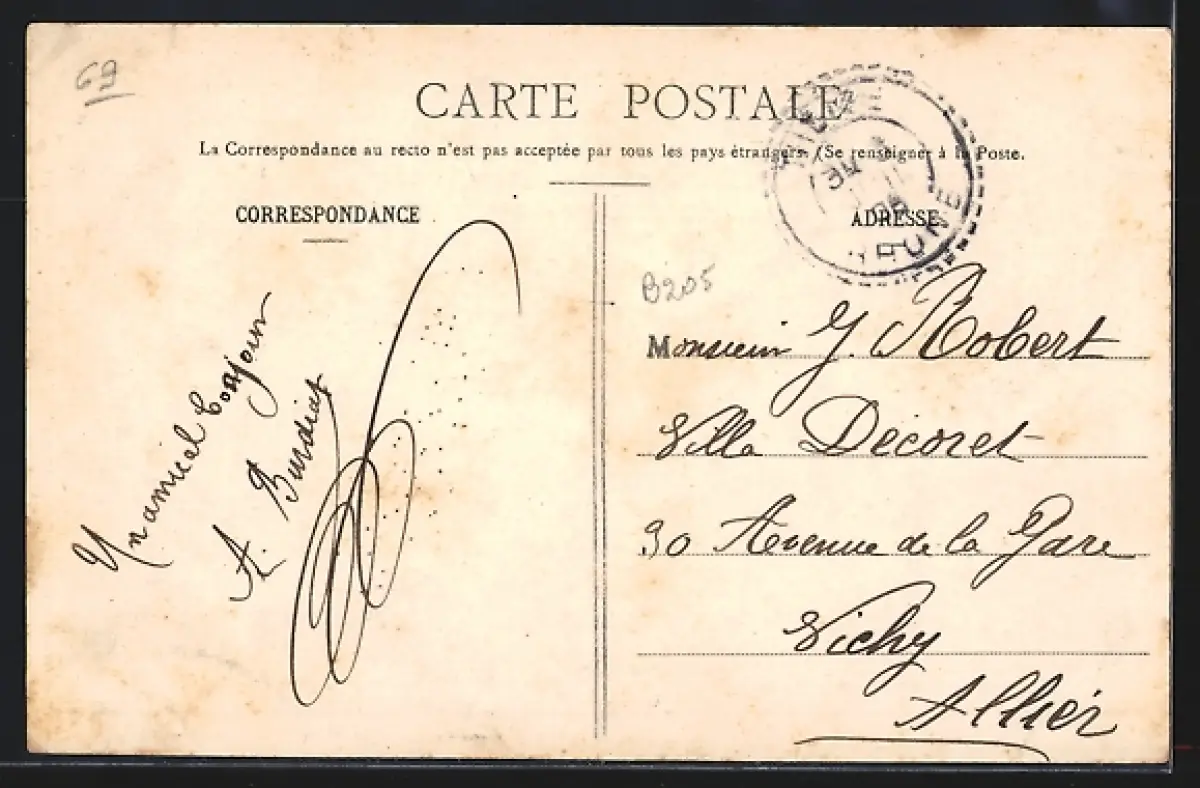 69
CARTE POSTALE
La Correspondance au recto n'est pas acceptée par tous les pays étrangers. (Se renseigner à la Poste.
CORRESPONDANCE
Un amical bonjour
A. Burdiat
ADRESSE
RHONE
B205
Monsieur G. Robert
Villa Decoret
30 Avenue de la Gare
Vichy
Allier